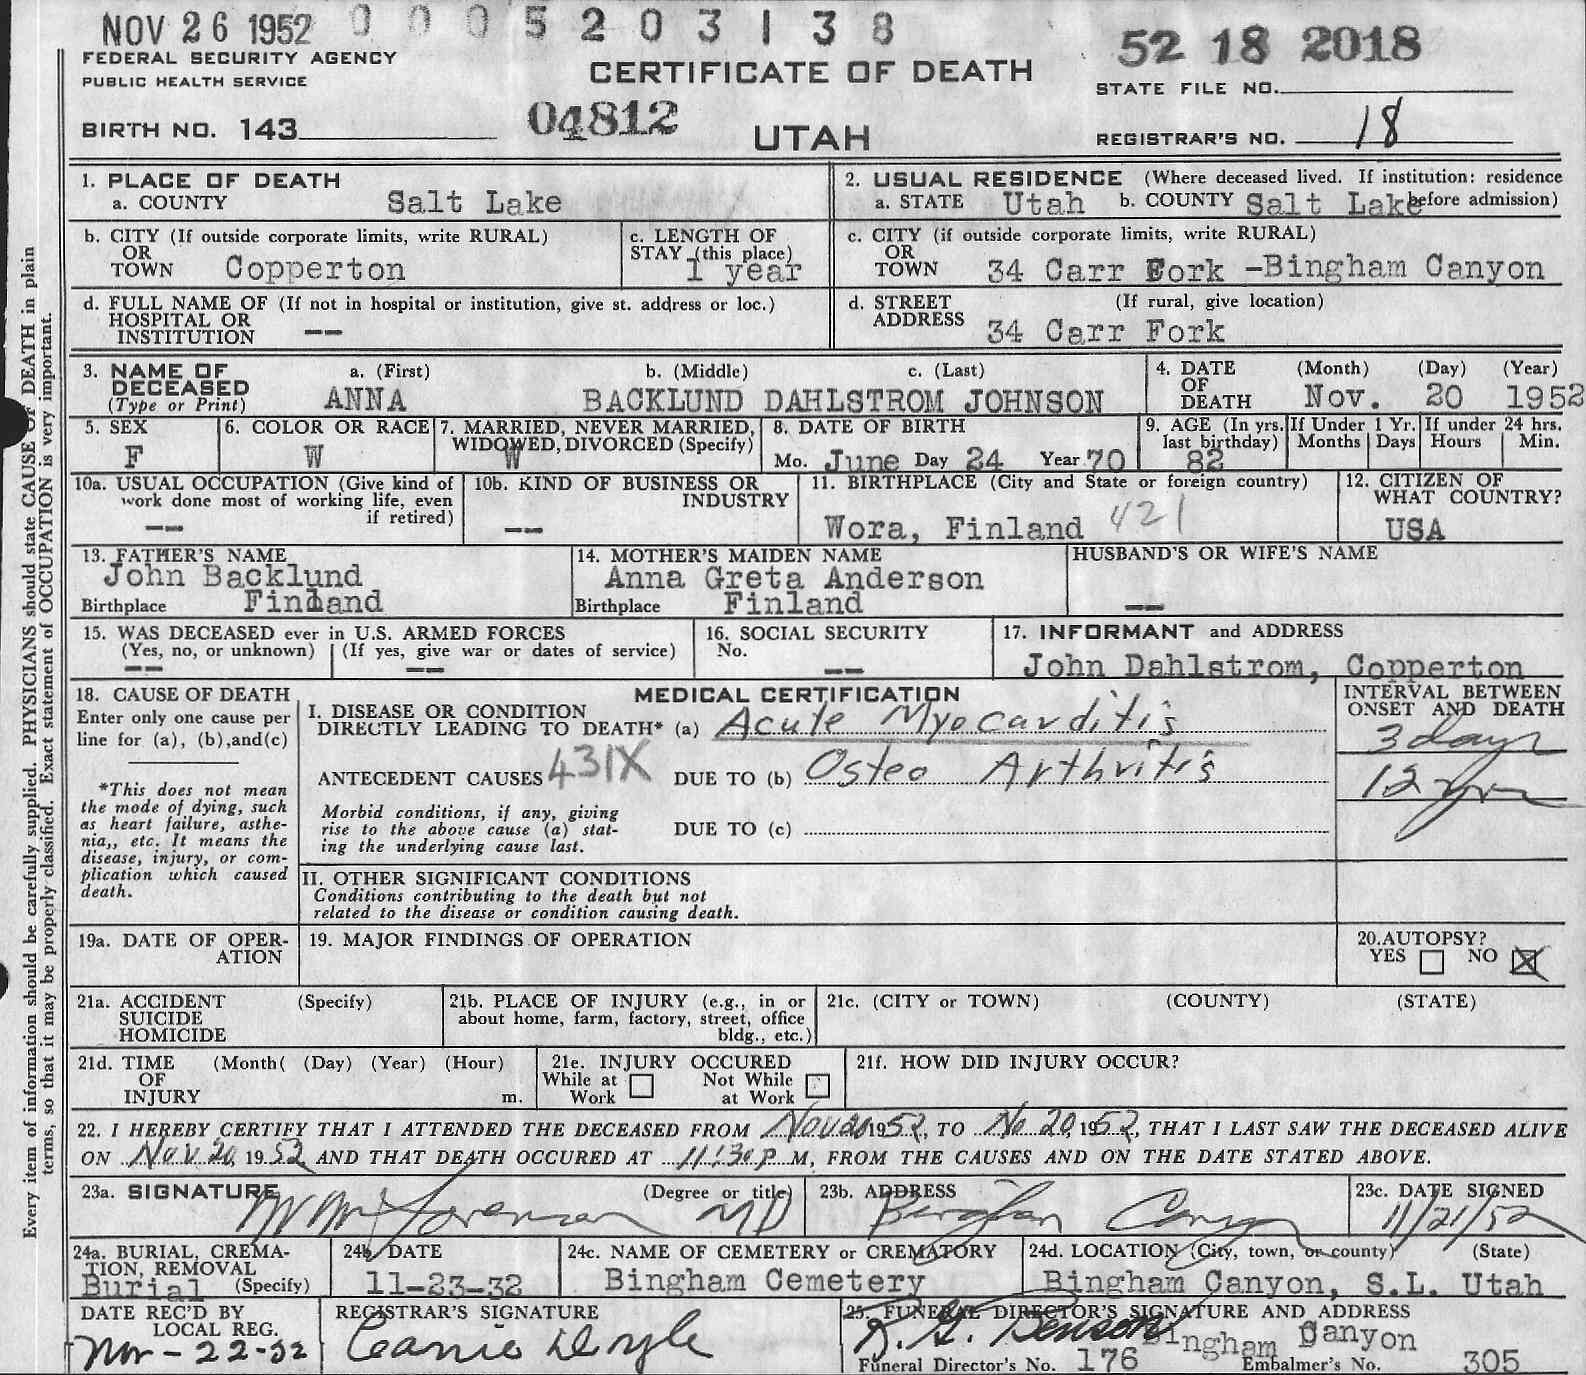 NOV 26 1952 0005203138
52 18 2018
FEDERAL SECURITY AGENCY
PUBLIC HEALTH SERVICE
CERTIFICATE OF DEATH
STATE FILE NO.
BIRTH NO. 143
04812
UTAH
REGISTRAR'S NO. 18
1. PLACE OF DEATH
a. COUNTY Salt Lake
2. USUAL RESIDENCE (Where deceased lived. If institution: residence
a. STATE Utah b. COUNTY Salt Lake before admission)
b. CITY (If outside corporate limits, write RURAL)
OR
TOWN Copperton
c. LENGTH OF
STAY (this place)
1 year
c. CITY (if outside corporate limits, write RURAL)
OR
TOWN 34 Carr Fork -Bingham Canyon
d. FULL NAME OF (If not in hospital or institution, give st. address or loc.)
HOSPITAL OR
INSTITUTION --
d. STREET (If rural, give location)
ADDRESS
34 Carr Fork
3. NAME OF
DECEASED
(Type or Print)
a. (First) b. (Middle) c. (Last)
ANNA BACKLUND DAHLSTROM JOHNSON
4. DATE
OF
DEATH
(Month) (Day) (Year)
Nov. 20 1952
5. SEX
F
6. COLOR OR RACE
W
7. MARRIED, NEVER MARRIED,
WIDOWED, DIVORCED (Specify)
W
8. DATE OF BIRTH
Mo. June Day 24 Year 70
9. AGE (In yrs.
last birthday)
82
If Under 1 Yr.
Months Days
If under 24 hrs.
Hours Min.
10a. USUAL OCCUPATION (Give kind of
work done most of working life, even
if retired)
--
10b. KIND OF BUSINESS OR
INDUSTRY
--
11. BIRTHPLACE (City and State or foreign country)
Wora, Finland 421
12. CITIZEN OF
WHAT COUNTRY?
USA
13. FATHER'S NAME
John Backlund
Birthplace Finland
14. MOTHER'S MAIDEN NAME
Anna Greta Anderson
Birthplace Finland
HUSBAND'S OR WIFE'S NAME
--
15. WAS DECEASED ever in U.S. ARMED FORCES
(Yes, no, or unknown) (If yes, give war or dates of service)
-- --
16. SOCIAL SECURITY
No.
--
17. INFORMANT and ADDRESS
John Dahlstrom, Copperton
18. CAUSE OF DEATH
Enter only one cause per
line for (a), (b),and(c)
*This does not mean
the mode of dying, such
as heart failure, asthe-
nia,, etc. It means the
disease, injury, or com-
plication which caused
death.
MEDICAL CERTIFICATION
I. DISEASE OR CONDITION
DIRECTLY LEADING TO DEATH* (a) Acute Myocarditis
ANTECEDENT CAUSES 431X DUE TO (b) Osteo Arthritis
Morbid conditions, if any, giving
rise to the above cause (a) stat-
ing the underlying cause last.
DUE TO (c)
INTERVAL BETWEEN
ONSET AND DEATH
3 days
12 yrs
II. OTHER SIGNIFICANT CONDITIONS
Conditions contributing to the death but not
related to the disease or condition causing death.
19a. DATE OF OPER-
ATION
19. MAJOR FINDINGS OF OPERATION
20. AUTOPSY?
YES NO
21a. ACCIDENT (Specify)
SUICIDE
HOMICIDE
21b. PLACE OF INJURY (e.g., in or
about home, farm, factory, street, office
bldg., etc.)
21c. (CITY or TOWN) (COUNTY) (STATE)
21d. TIME (Month( (Day) (Year) (Hour)
OF
INJURY m.
21e. INJURY OCCURED
While at Work Not While at Work
21f. HOW DID INJURY OCCUR?
22. I HEREBY CERTIFY THAT I ATTENDED THE DECEASED FROM Nov 20 1952, TO No. 20, 1952, THAT I LAST SAW THE DECEASED ALIVE
ON Nov 20, 1952 AND THAT DEATH OCCURED AT 11:30 p M, FROM THE CAUSES AND ON THE DATE STATED ABOVE.
23a. SIGNATURE (Degree or title)
MD
23b. ADDRESS
Bingham Canyon
23c. DATE SIGNED
11/21/52
24a. BURIAL, CREMA-
TION, REMOVAL
Burial (Specify)
24b. DATE
11-23-32
24c. NAME OF CEMETERY or CREMATORY
Bingham Cemetery
24d. LOCATION (City, town, or county) (State)
Bingham Canyon, S.L. Utah
DATE REC'D BY
LOCAL REG.
Nov-22-52
REGISTRAR'S SIGNATURE
Doyle
25. FUNERAL DIRECTOR'S SIGNATURE AND ADDRESS
Benson Bingham Canyon
Funeral Director's No. 176 Embalmer's No. 305
Every item of information should be carefully supplied. PHYSICIANS should state CAUSE OF DEATH in plain
terms, so that it may be properly classified. Exact statement of OCCUPATION is very important.